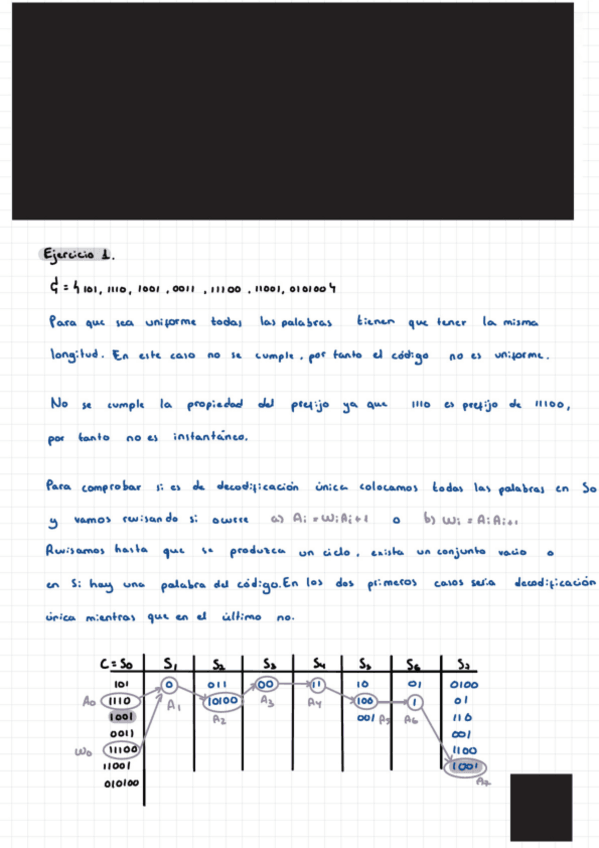 Ejercicio 1.
C = { 101, 1110, 1001, 0011, 11100, 11001, 010100 }
Para que sea uniforme todas las palabras tienen que tener la misma
longitud. En este caso no se cumple, por tanto el código no es uniforme.
No se cumple la propiedad del prefijo ya que 1110 es prefijo de 11100,
por tanto no es instantáneo.
Para comprobar si es de decodificación única colocamos todas las palabras en S0
y vamos revisando si ocurre a) Ai = WiAi+1 o b) Wi = AiAi+1
Revisamos hasta que se produzca un ciclo, exista un conjunto vacio o
en Si hay una palabra del código. En los dos primeros casos seria decodificación
única mientras que en el último no.
C = S0 S1 S2 S3 S4 S5 S6 S7
101 0 011 00 11 10 01 0100
A0 1110 A1 10100 A3 A4 100 1 01
1001 A2 001 A5 A6 110
0011 001
W0 11100 1100
11001 1001
010100 A7